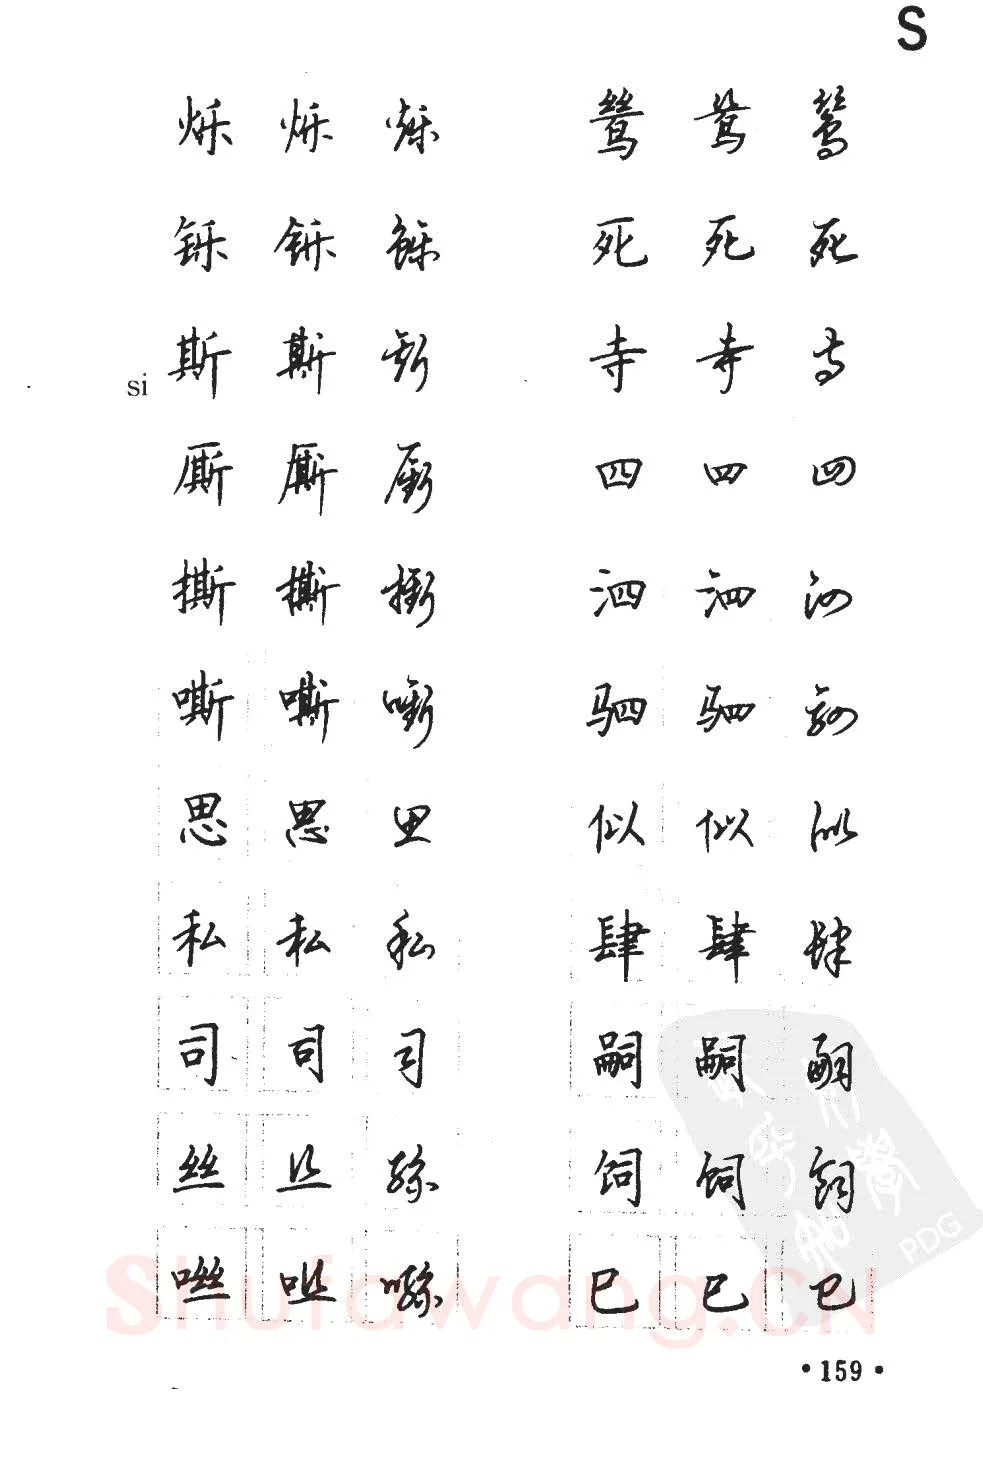 S
烁 烁 烁
铄 铄 铄
si 斯 斯 斯
厮 厮 厮
撕 撕 撕
嘶 嘶 嘶
思 思 思
私 私 私
司 司 司
丝 丝 丝
咝 咝 咝
鸶 鸶 鸶
死 死 死
寺 寺 寺
四 四 四
泗 泗 泗
驷 驷 驷
似 似 似
肆 肆 肆
嗣 嗣 嗣
饲 饲 饲
巳 巳 巳
PDG
Shufawang.CN
·159·